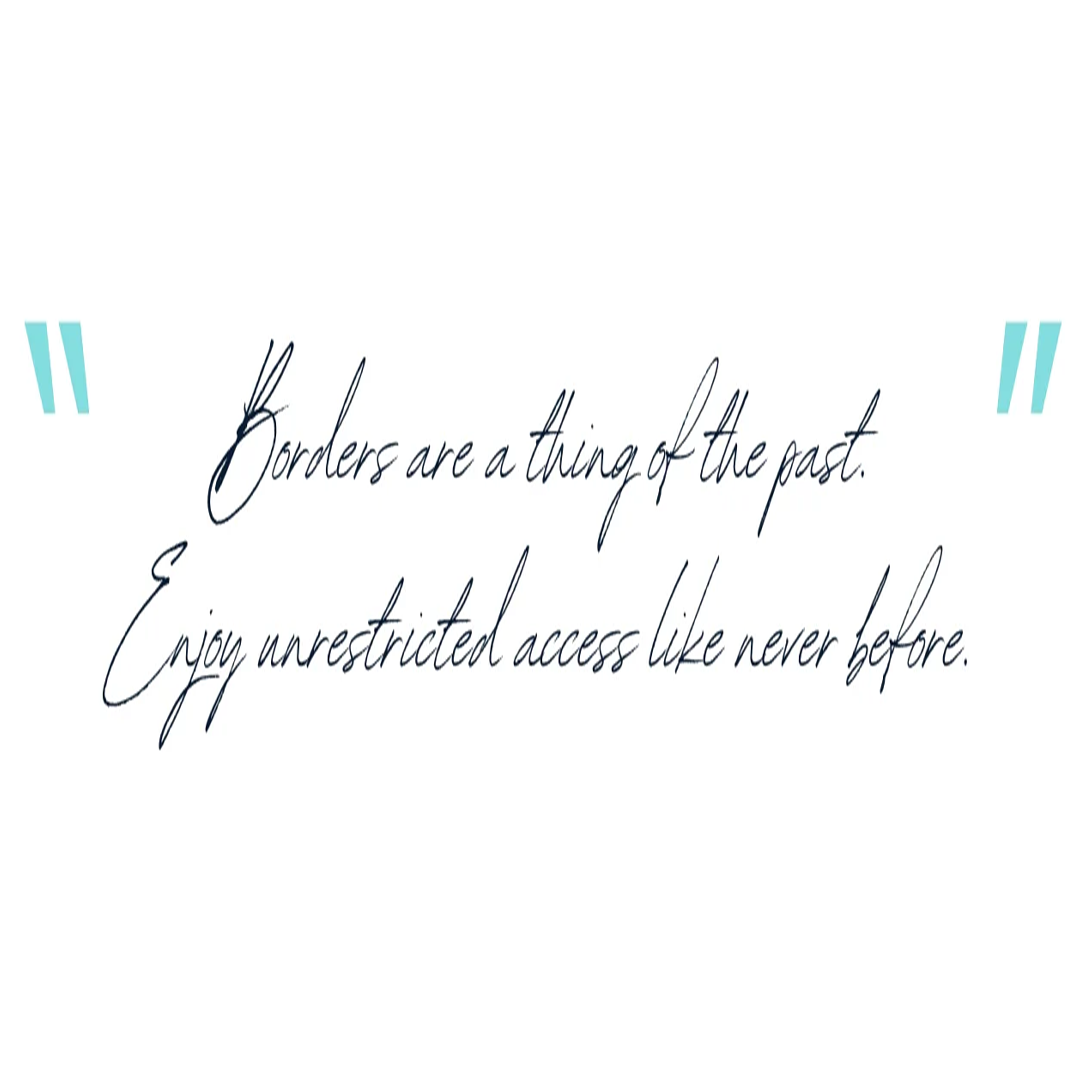 "Borders are a thing of the past.
Enjoy unrestricted access like never before."